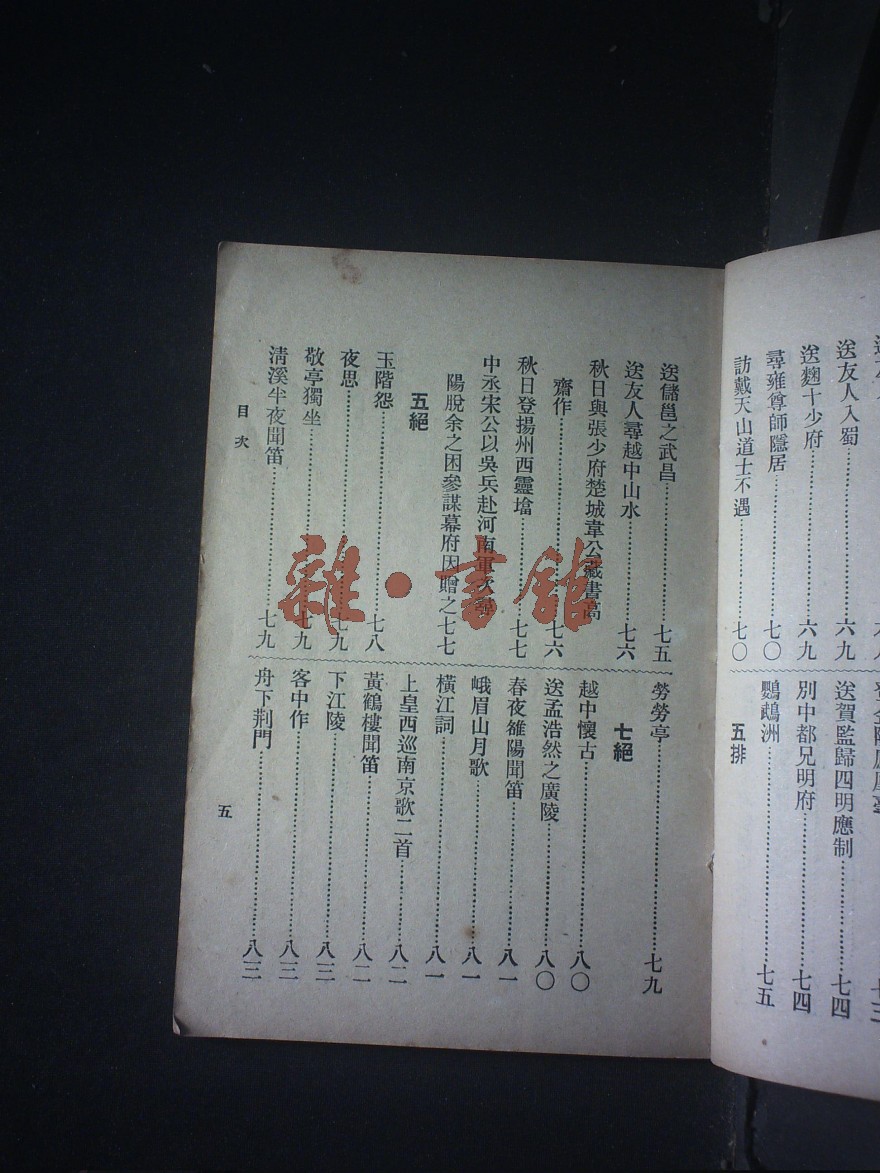 送友人入蜀 六九
送麴十少府 六九
尋雍尊師隱居 七〇
訪戴天山道士不遇 七〇
送賀監歸四明應制 七四
別中都兄明府 七四
鸚鵡洲 七五
五排
送儲邕之武昌 七五
送友人尋越中山水 七六
秋日與張少府楚城韋公藏書高
齋作 七六
秋日登揚州西靈塔 七七
中丞宋公以吳兵赴河南軍次尋
陽脫余之困參謀幕府因贈之 七七
五絕
玉階怨 七八
夜思 七九
敬亭獨坐 七九
清溪半夜聞笛 七九
勞勞亭 七九
七絕
越中懷古 八〇
送孟浩然之廣陵 八〇
春夜雒陽聞笛 八一
峨眉山月歌 八一
橫江詞 八一
上皇西巡南京歌二首 八二
黃鶴樓聞笛 八二
下江陵 八三
客中作 八三
舟下荆門 八三
目次
五
雜·書館